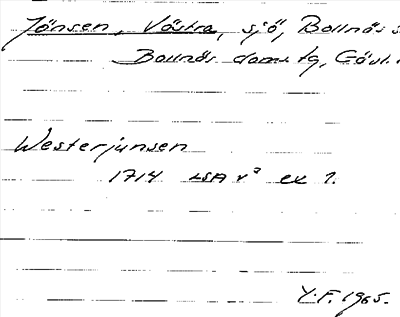 Jönsen, Västra, sjö, Bollnäs s
Bollnäs doms tg, Gävl.
Westerjunsen
1714 LSA X² ex 1.
Y.F. 1965.